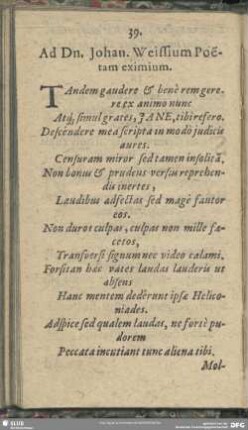 39.
Ad Dn. Johan. Weissium Poë-
tam eximium.
TAndem gaudere & benè rem gere-
re ex animo nunc
Atq; simul grates, JANE, tibi refero.
Descendere mea scripta in modò judicii
aures.
Censuram miror sed tamen insolitã,
Non bonus & prudens versus reprehen-
dis inertes,
Laudibus adfectas sed magè fautor
eos.
Non duros culpas, culpas non mille fa-
cetos,
Transversi signum nec video calami.
Forsitan hac vates laudas lauderis ut
absens
Hanc mentem dedêrunt ipsæ Helico-
niades.
Adspice sed qualem laudas, ne fortè pu-
dorem
Peccata incutiant tunc aliena tibi.
Mol-
SLUB